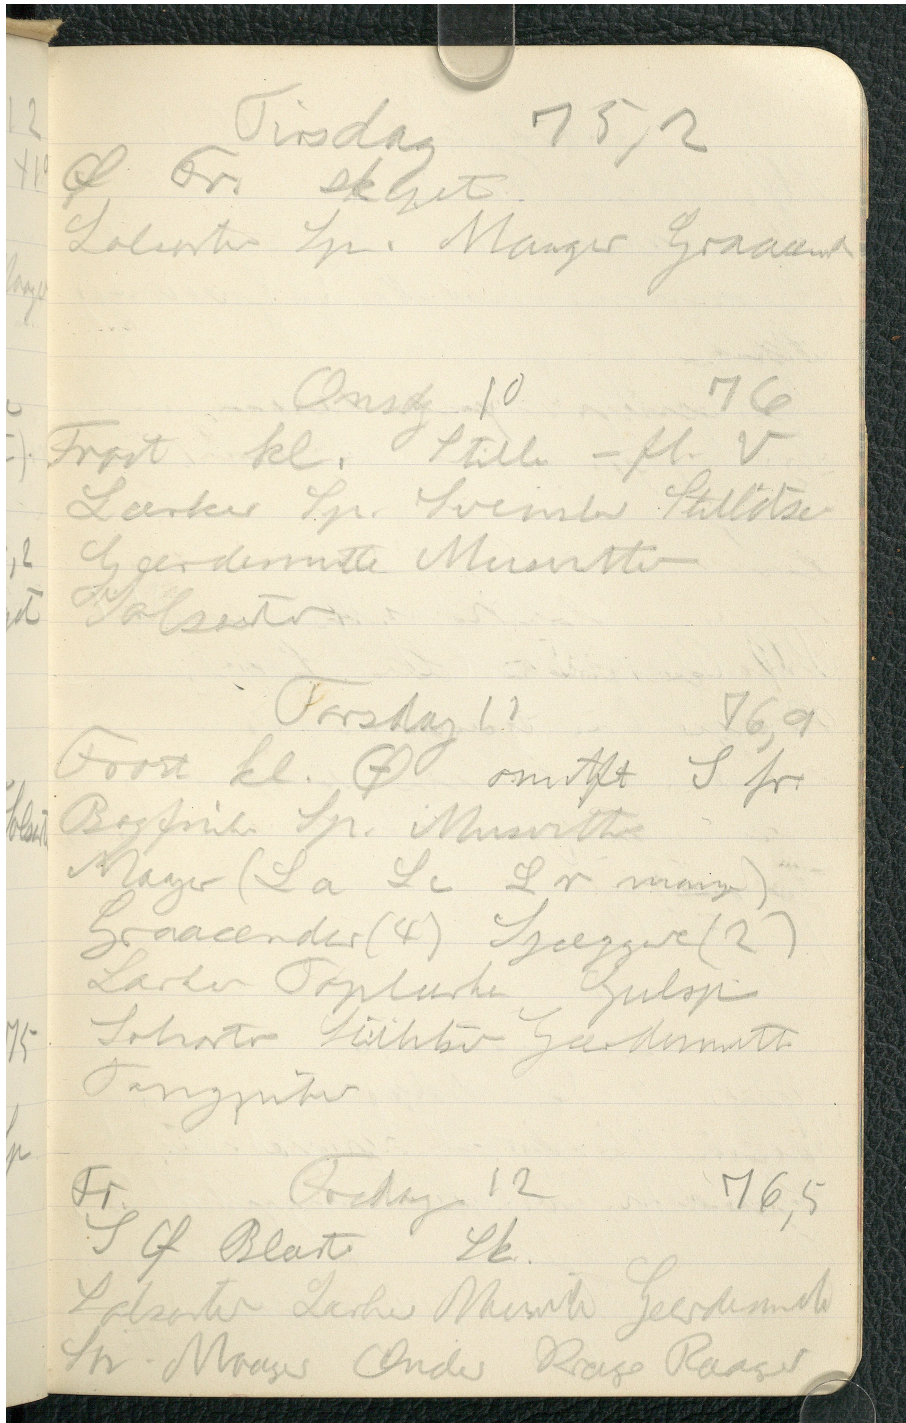 Tirsdag 75,2
Ø Fr. skyet
Solsorter Sp. Maager Graaænd
Onsdg 10 76
Frost kl. Stille – fl. V
Lærker Sp. Svenske Stillitser
Gjærdesmutte Musvitter
Solsorter
Torsdag 11 76,9
Frost kl. Ø omskift S fr.
Bogfinke Sp. Musvitte
Maager (L a L c L r mange)
Graaænder (4) Sjægger (2)
Lærker Toplærke Gulsp
Solsorter Stillitser Gjærdesmutte
Tangpiber
Fr. Fredag 12 76,5
S Ø Blæst Sk.
Solsorter Lærker Musvit Gjærdesmutte
Sp. Maager Ænder Krage Raager